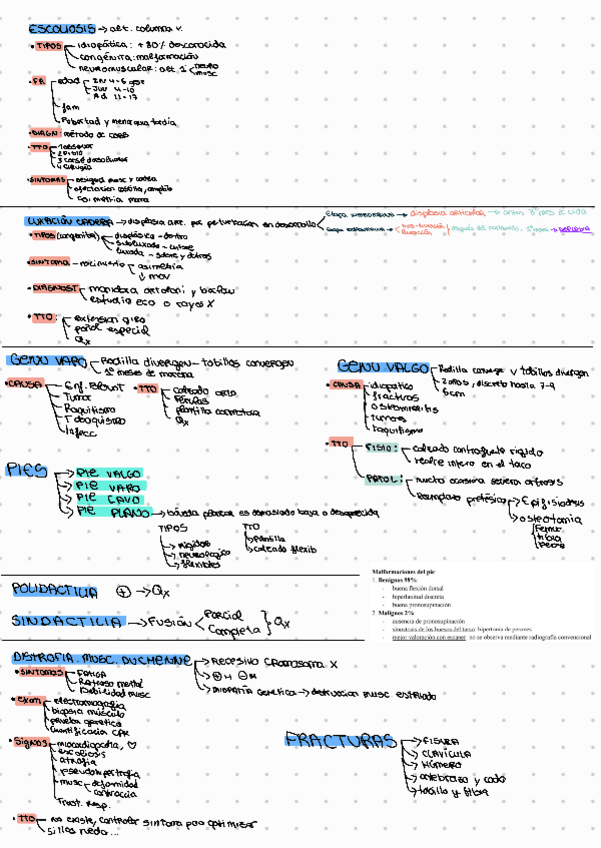 ESCOLIOSIS → alt. columna v.
• TIPOS idiopática: + 80% desconocida
congénita: malformación
neuromuscular: alt 1ª neuro
musc
• FR edad IN 4-6 años
Juv 4-10
Ad 11-17
fam
Pubertad y menarquia tardía
• DIAGN: método de COBB
• TTO 1 observar
4 cirugía
• SINTOMAS
LUXACIÓN CADERA → displasia art. por perturbación en desarrollo
displasia articular
• TIPOS (congénita) displásica - dentro
subluxada
luxada - sobre y detrás
• SINTOMA - nacimiento asimetría
↓ mov
• DIAGNOST maniobra ortolani y barlow
estudio eco o rayos X
• TTO:
especial
Qx
GENU VARO Rodilla divergen - tobillos convergen
1º meses de marcha
• CAUSA Enf. Blount
Tumor
Raquitismo
Tabaquismo
Infecc
• TTO calzado orto
Férulas
plantilla correctora
Qx
GENU VALGO Rodilla converge y tobillos divergen
2 años, discreto hasta 7-9
5cm
• CAUSA idiopático
fracturas
osteomielitis
tumores
raquitismo
• TTO FISIO: calzado contrafuerte rígido
realce interno en el taco
PATOL: mucho ocasiona severa artrosis
Reemplazo protésico Epifisiodesis
osteotomia
Femur
tibia
PIES PIE VALGO
PIE VARO
PIE CAVO
PIE PLANO → bóveda plantar es demasiado baja o desaparecida
TIPOS
rígidos
neurológico
flexibles
TTO
plantilla
calzado flexib
POLIDACTILIA ⊕ → Qx
SINDACTILIA → FUSIÓN Parcial
Completa } Qx
Malformaciones del pie:
1. Benignos 98%
- buena flexión dorsal
- hiperlaxitud discreta
- buena pronosupinación
2. Malignos 2%
- ausencia de pronosupinación
- sinostosis de los huesos del tarso: hipertonía de peroneo
- mejor valoración con escaner: no se observa mediante radiografía convencional
DISTROFIA. MUSC. DUCHENNE → Recesivo cromosoma X
⊕ H ⊖ M
miopatía genética → destrucción musc estriado
• SINTOMAS FATIGA
Retraso mental
Debilidad musc
• EXAM electromiografía
biopsia músculo
prueba genética
cuantificación CPK
• SIGNOS miocardiopatía, ♡
escoliosis
atrofia
pseudohipertrofia
musc deformidad
contractura
Trast. resp.
• TTO no existe, controlar sintoma para optimizar
silla rueda...
FRACTURAS FISURA
CLAVÍCULA
HÚMERO
antebrazo y codo
tobillo y tibia